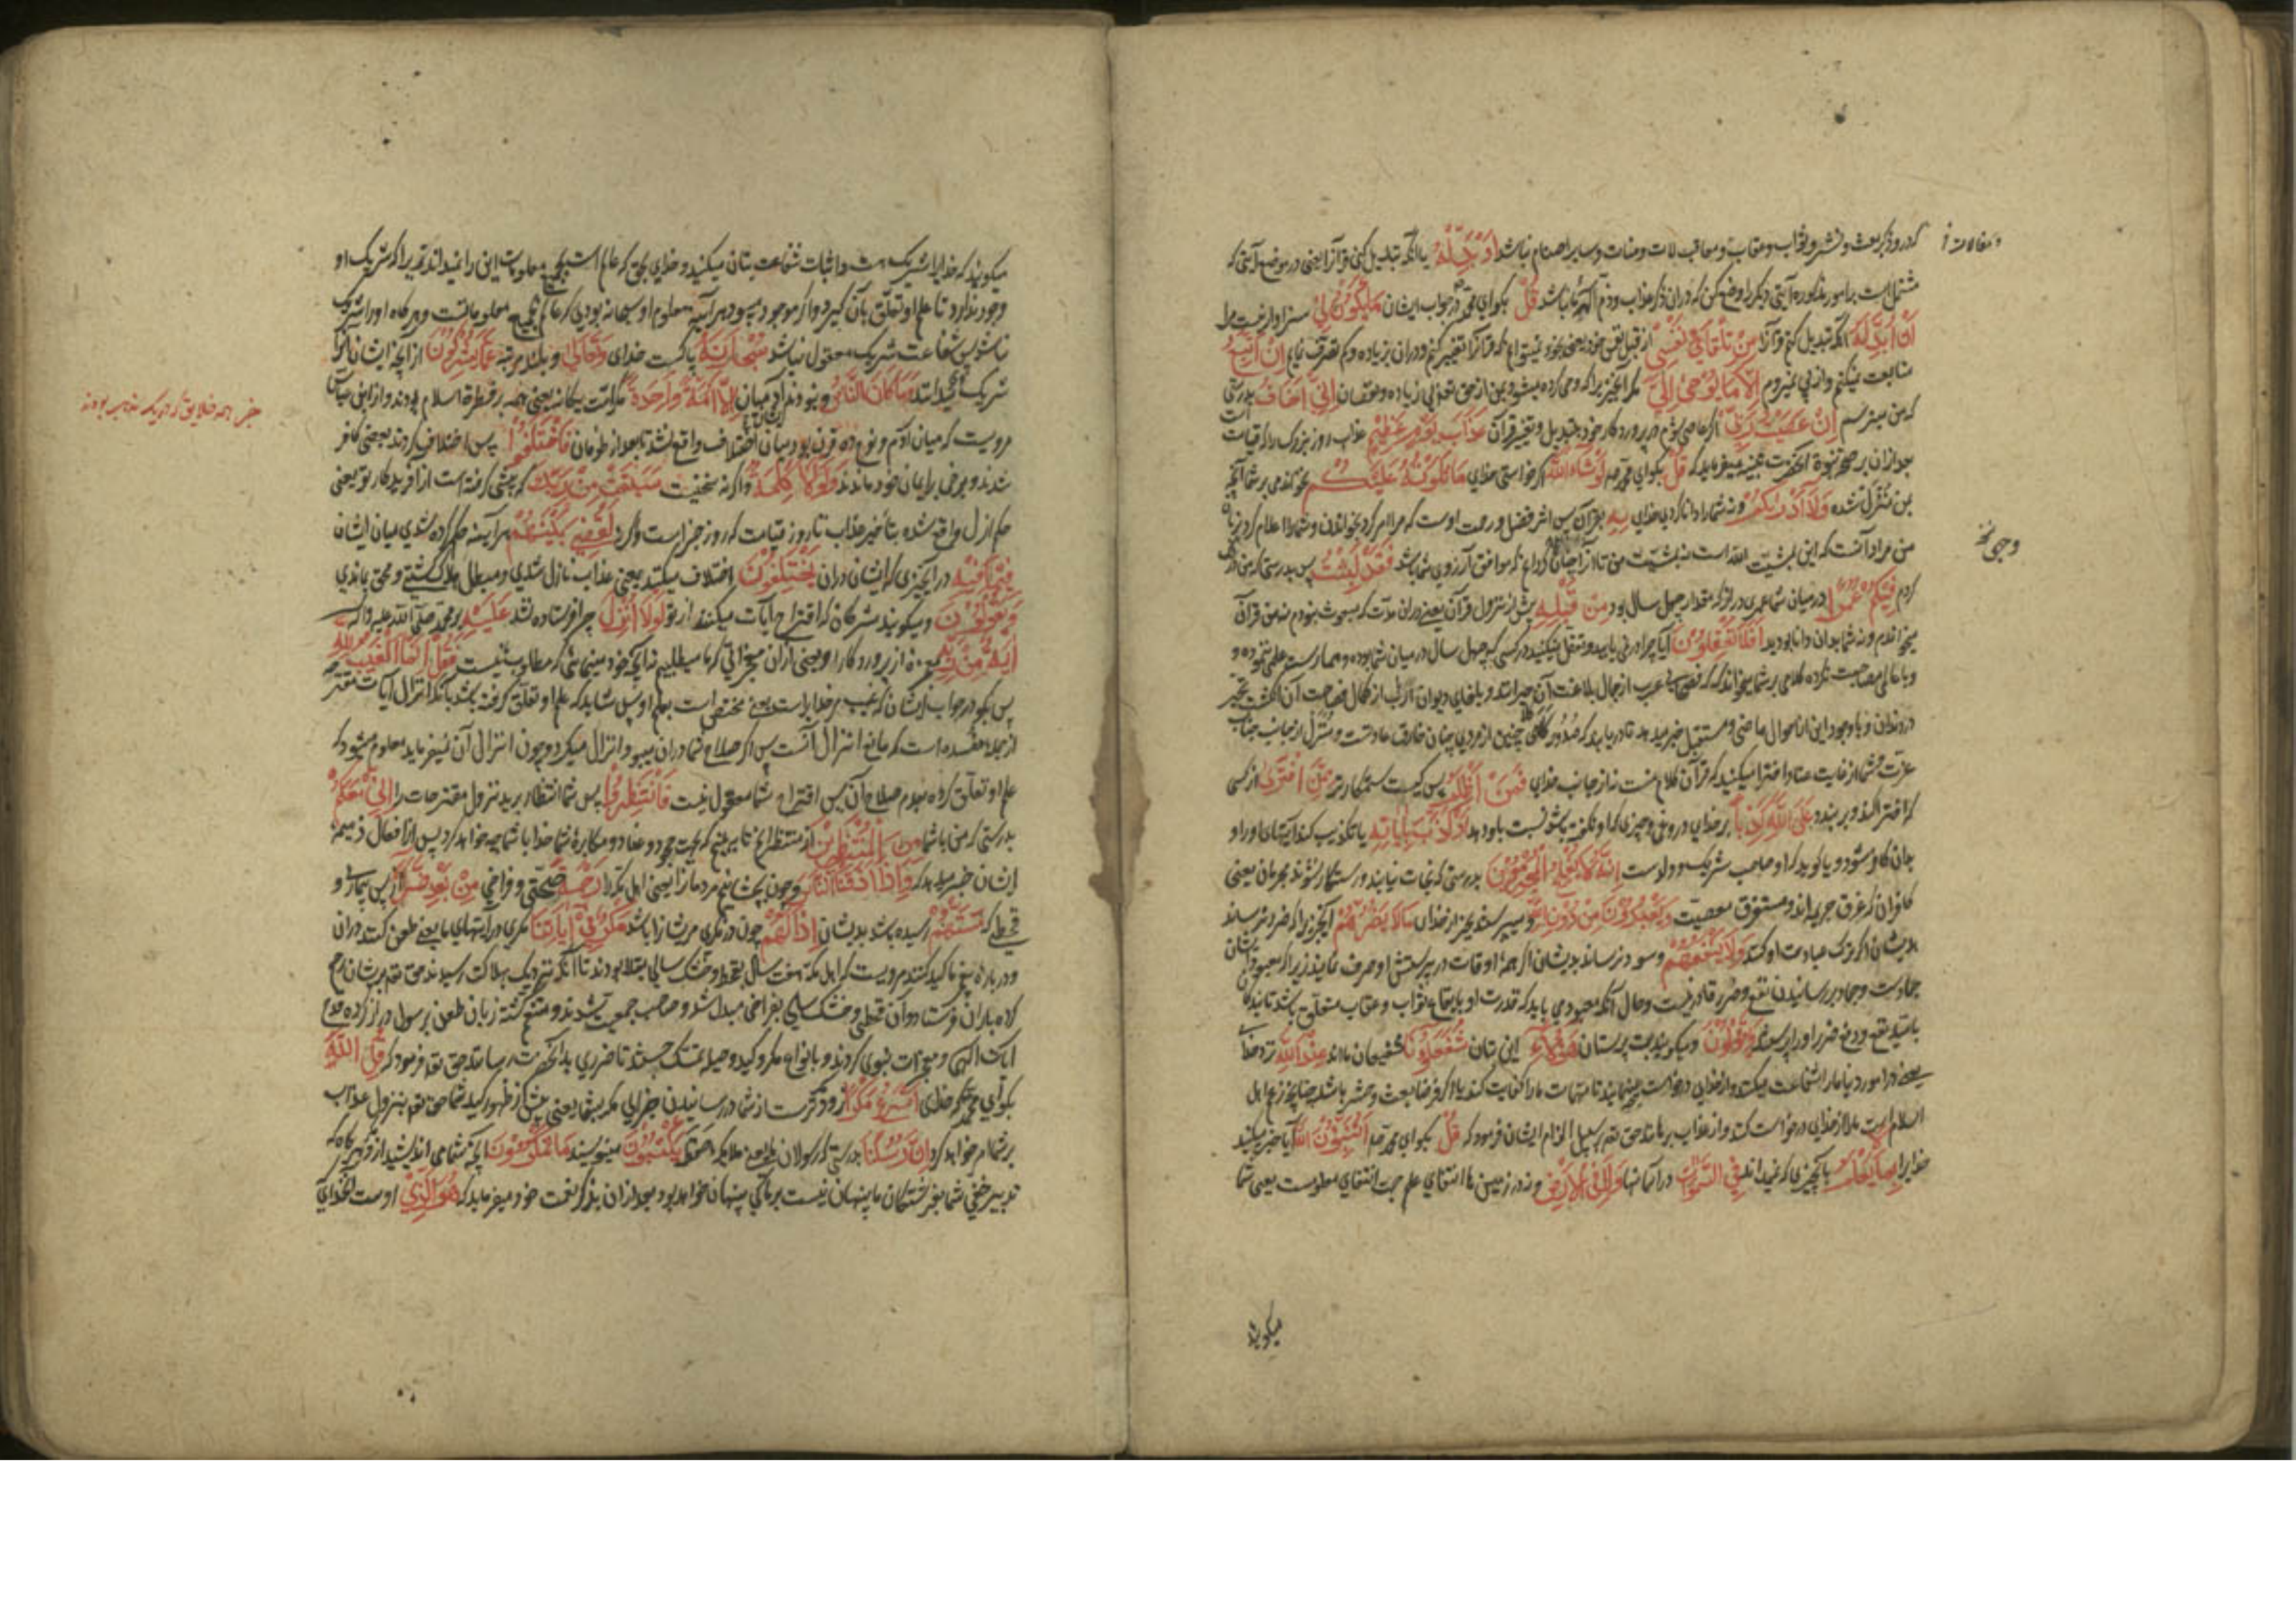 که درو ذکر بعث و نشر و ثواب و عقاب و معایب لات و منات و سایر اصنام نباشد اَوْ بَدِّلْهُ یا آنکه تبدیل کنی قرآنرا یعنی در موضع آیتی که
مشتمل است بر امور مذکوره آیتی دیگر را وضع کن که دران ذکر عذاب و ذم آلهه ما نباشد قُلْ بگو ای محمد در جواب ایشان مَا یَکُونُ لِی سزاوار نیست مرا
اَنْ اُبَدِّلَهُ آنکه تبدیل کنم قرآنرا مِنْ تِلْقَاءِ نَفْسِی از قبل نفس خود یعنی بخود نمیتوانم که قرآنرا تغییر کنم و دران بزیاده و کم تصرف نمایم اِنْ اَتَّبِعُ
متابعت نمیکنم و از پی نمیروم اِلَّا مَا یُوحَی اِلَیَّ مگر آنچیز را که وحی کرده میشود بمن از حق تعالی بی زیاده و نقصان اِنِّی اَخَافُ بدرستی
که من میترسم اِنْ عَصَیْتُ رَبِّی اگر عاصی شوم در پروردگار خود بتبدیل و تغییر قرآن عَذَابَ یَوْمٍ عَظِیمٍ عذاب روز بزرگ را که قیامت است
بعد ازان بر صحت نبوة آنحضرت تنبیه میفرماید که قُلْ بگو ای محمد لَوْ شَاءَ اللّٰهُ اگر خواستی خدای مَا تَلَوْتُهُ عَلَیْکُمْ نخواندمی بر شما آنچه
بمن منزل شده وَلَا اَدْرٰیکُمْ و نه شما را دانا کردی خدای بِهِ بقرآن پس اثر فضل و رحمت اوست که مرا امر کرد بخواندن و شما را اعلام کرد بزبان
من مراد آنست که این بمشیت الله است نه بمشیت من تا آنرا چنان گردانم که موافق آرزوی شما باشد فَقَدْ لَبِثْتُ پس بدرستی که من درنگ
وحی نخ
کردم فِیکُمْ عُمُرًا در میان شما عمری دراز که مقدار چهل سال بود مِنْ قَبْلِهِ پیش از نزول قرآن یعنی دران مدت که مبعوث نبودم نه من قرآن
میخواندم و نه شما بدان دانا بودید اَفَلَا تَعْقِلُونَ آیا چرا در نمی یابید و تعقل نمیکنید در کسی که چهل سال در میان شما بوده و ممارست علمی ننموده و
و با عالمی مصاحبت نکرده کلامی بر شما میخواند که فصحای عرب از جمال بلاغت آن حیرانند و بلغای دیوان ادب از کمال فصاحت آن انگشت تحیر
در دندان و با وجود این از احوال ماضی و مستقبل خبر میدهد تا دریابید که صدور کلامی چنین از مردی چنان خارق عادتست و منزل از جانب جناب
عزت و شما از غایت عناد افترا میکنید که قرآن کلام منست نه از جانب خدای فَمَنْ اَظْلَمُ پس کیست ستمکارتر مِمَّنِ افْتَرٰی از کسی
که افترا کند و بربندد عَلَی اللّٰهِ کَذِبًا بر خدای دروغی و چیزی که او نگفته باشد نسبت باو دهد اَوْ کَذَّبَ بِاٰیَاتِهِ یا تکذیب کند آیتهای او را و
بدان کافر شود و یا گوید که او صاحب شریک و ولد است اِنَّهُ لَا یُفْلِحُ الْمُجْرِمُونَ بدرستی که نجات نیابند و رستگار نشوند مجرمان یعنی
کافران که غرق جریمه اند و مستغرق معصیت وَیَعْبُدُونَ مِنْ دُونِ اللّٰهِ و میپرستند بجز از خدای مَا لَا یَضُرُّهُمْ آنچیز را که ضرر نرساند
بدیشان اگر ترک عبادت او کنند وَلَا یَنْفَعُهُمْ و سود نرساند بدیشان اگر همه اوقات در پرستش او صرف نمایند زیرا که معبود ایشان
جمادست و جماد بر رسانیدن نفع و ضرر قادر نیست و حال آنکه معبود می باید که قدرت او بایقاع ثواب و عقاب متعلق باشد تا بندگان
بامید نفع و دفع ضرر او را پرستند وَیَقُولُونَ و میگویند بت پرستان هٰؤُلَاءِ این بتان شُفَعَاؤُنَا شفیعان مااند عِنْدَ اللّٰهِ نزد خدای
یعنی در امور دنیا ما را شفاعت میکنند و از خدای درخواست مینمایند تا مهمات ما را کفایت کند یا اگر فرضا بعث و حشر باشد چنانچه زعم اهل
اسلام است ما را از خدای درخواست کنند و از عذاب برهانند حق تعالی بر سبیل الزام ایشان فرمود که قُلْ بگو ای محمد اَتُنَبِّئُونَ اللّٰهَ آیا خبر میکنید
خدایرا بِمَا لَا یَعْلَمُ بآنچیزی که نمیداند فِی السَّمٰوَاتِ در آسمانها وَلَا فِی الْاَرْضِ و نه در زمین ها انتفای علم جهت انتفای معلومست یعنی شما
میگویند
میگویند که خدایرا شریک هست و اثبات شفاعت بتان میکنید و خدای بحق که عالم است بجمیع معلومات این را نمیداند تقدیرا که شریک او
وجود ندارد تا علم او تعلق بآن گیرد و اگر موجود میبود هر آینه معلوم او سبحانه بودی که عالم بجمیع معلوماتست و هرگاه او را شریک
نباشد پس شفاعت شریک معقول نباشد سُبْحَانَهُ پاکست خدای وَتَعَالٰی و بلند مرتبه عَمَّا یُشْرِکُونَ از آنچه ایشان با او
شریک گیرانند وَمَا کَانَ النَّاسُ و نبودند آدمیان اِلَّا اُمَّةً وَاحِدَةً مگر امت یگانه یعنی همه بر فطرة اسلام بودند و از ابن عباس
مرویست که میان آدم و نوح ده قرن بود میان ایشان اختلاف واقع نشد تا بعد از طوفان فَاخْتَلَفُوا پس اختلاف کردند بعضی کافر
شدند و برخی بر ایمان خود ماندند وَلَوْلَا کَلِمَةٌ و اگر نه سخنیست سَبَقَتْ مِنْ رَبِّکَ که پیشی گرفته است از آفریدگار تو یعنی
حکم ازل واقع شده بتأخیر عذاب تا روز قیامت که روز جزاست و اگر نه لَقُضِیَ بَیْنَهُمْ هر آینه حکم کرده شدی میان ایشان
فِیمَا فِیهِ در آنچیزی که ایشان دران یَخْتَلِفُونَ اختلاف میکنند یعنی عذاب نازل شدی و مبطل هلاک گشتی و محق بماندی
وَیَقُولُونَ و میگویند مشرکان که اقتراح آیات میکنند از تو لَوْلَا اُنْزِلَ چرا فرستاده نشد عَلَیْهِ بر محمد صلی الله علیه و آله
اٰیَةٌ مِنْ رَبِّهِ معجزه از پروردگار او یعنی ازان معجزاتی که ما میطلبیم نه آنچه خود مینمائی که مطلوب نیست فَقُلْ اِنَّمَا الْغَیْبُ لِلّٰهِ
پس بگو در جواب ایشان که غیب مر خدایراست یعنی مختص است بعلم او پس شاید که علم او تعلق گرفته باشد بآنکه انزال آیات مقترحه
از جمله مفسده است که مانع انزال آنست پس اگر صلاح شما دران میبود انزال میکرد و چون انزال آن نمیفرماید معلوم میشود که
علم او تعلق کرده بعدم صلاح آن پس اقتراح شما معقول نیست فَانْتَظِرُوا پس شما انتظار برید نزول مقترحات را اِنِّی مَعَکُمْ
بدرستی که من با شما مِنَ الْمُنْتَظِرِینَ از منتظرانم تا ببینم که بجهت جحود و عناد و مکابرهٔ شما خدا با شما چه خواهد کرد پس از افعال ذمیمهٔ
ایشان خبر میدهد که وَاِذَا اَذَقْنَا النَّاسَ و چون بچشانیم مردمان را یعنی اهل مکه را رَحْمَةً صحتی و فراخی مِنْ بَعْدِ ضَرَّاءَ از پس بیماری و
قحطی که مَسَّتْهُمْ رسیده باشد بدیشان اِذَا لَهُمْ چون درنگری مر ایشان را باشد مَکْرٌ فِی اٰیَاتِنَا مکری در آیتهای ما یعنی طعن کنند دران
و در باره پیغمبر ما کید کنند مرویست که اهل مکه هفت سال بقحط و خشک سالی مبتلا بودند تا آنکه نزدیک بهلاکت رسیدند حق تعالی بریشان رحم
کرده باران فرستاد و آن قحطی و خشک سالی بفراخی مبدل شد و صاحب جمعیت شدند و متنعم گشته زبان طعن بر رسول دراز کرده
آیات الهی و معجزات نبوی کردند و بانواع مکر و کید و حیله تمسک جستند تا ضرری بدانحضرت رسانند حق تعالی فرمود که قُلِ اللّٰهُ
بگو ای محمد که خدای اَسْرَعُ مَکْرًا زودترست از شما در رسانیدن جزای مکر بشما یعنی پیش از ظهور کید شما حق تعالی بنزول عذاب
بر شما امر خواهد کرد اِنَّ رُسُلَنَا بدرستی که رسولان ما یعنی ملائکه حفظه یَکْتُبُونَ مینویسند مَا تَمْکُرُونَ آنچه شما می اندیشید از مکر هرگاه که
تدبیر خفی شما بفرشتگان ما پنهان نیست بر ما کی پنهان خواهد بود بعد ازان بذکر نعمت خود میفرماید که هُوَ الَّذِی اوست آنخدای